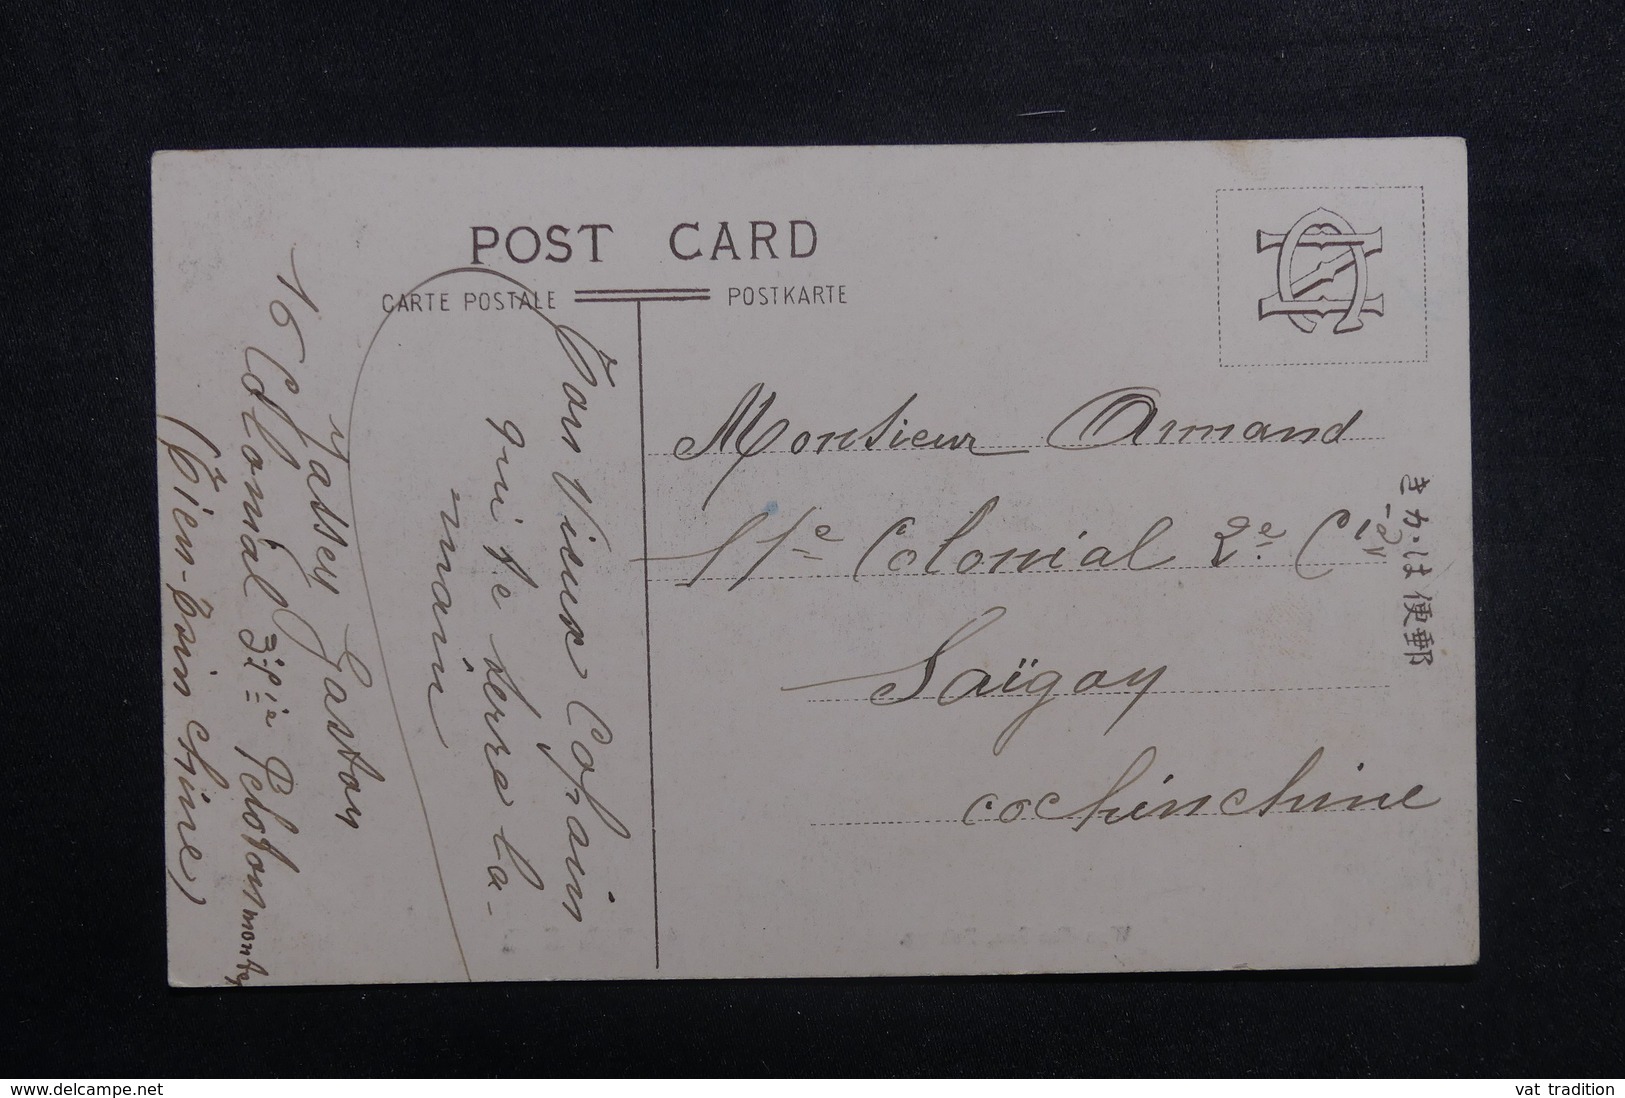 POST CARD
CARTE POSTALE
POSTKARTE
Ton Vieux Copain
qui te serre la
main
Massey Gaston
16 Colonial 3e Cie Peloton monté
(Tien-Tsin chine)
Monsieur Armand
11e Colonial 2e Cie
Saïgon
cochinchine
きかは便郵
www.delcampe.net
vat_tradition